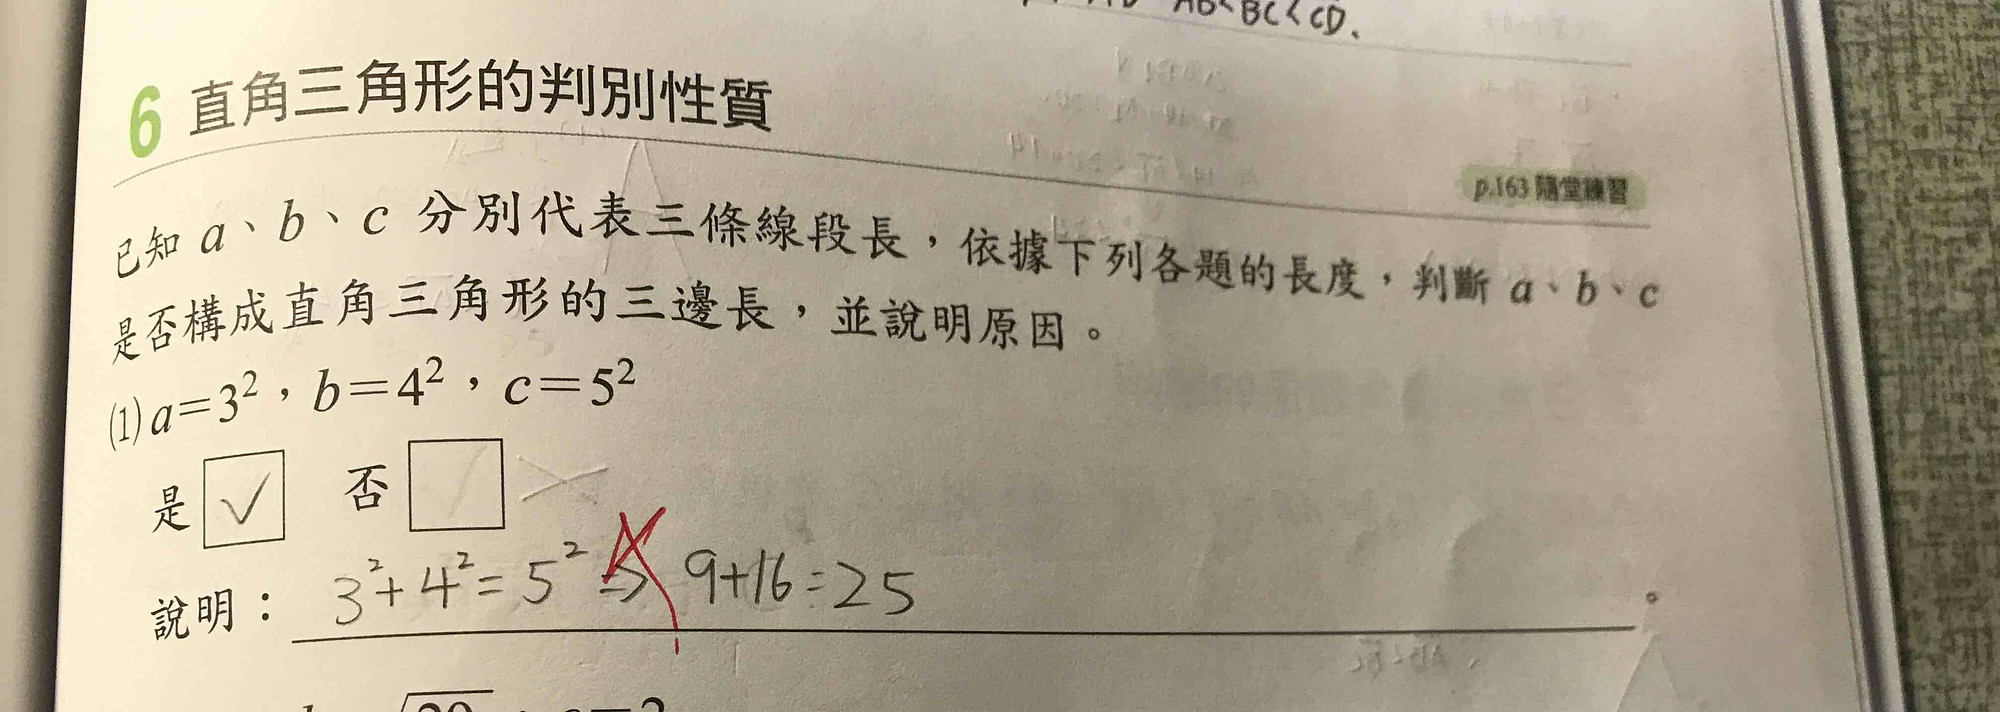 AB<BC<CD.
6 直角三角形的判別性質
p.163 隨堂練習
已知 a、b、c 分別代表三條線段長,依據下列各題的長度,判斷 a、b、c
是否構成直角三角形的三邊長,並說明原因。
(1) a=3²,b=4²,c=5²
是 ✓ 否
說明: 3²+4²=5² ⇒ 9+16=25 。